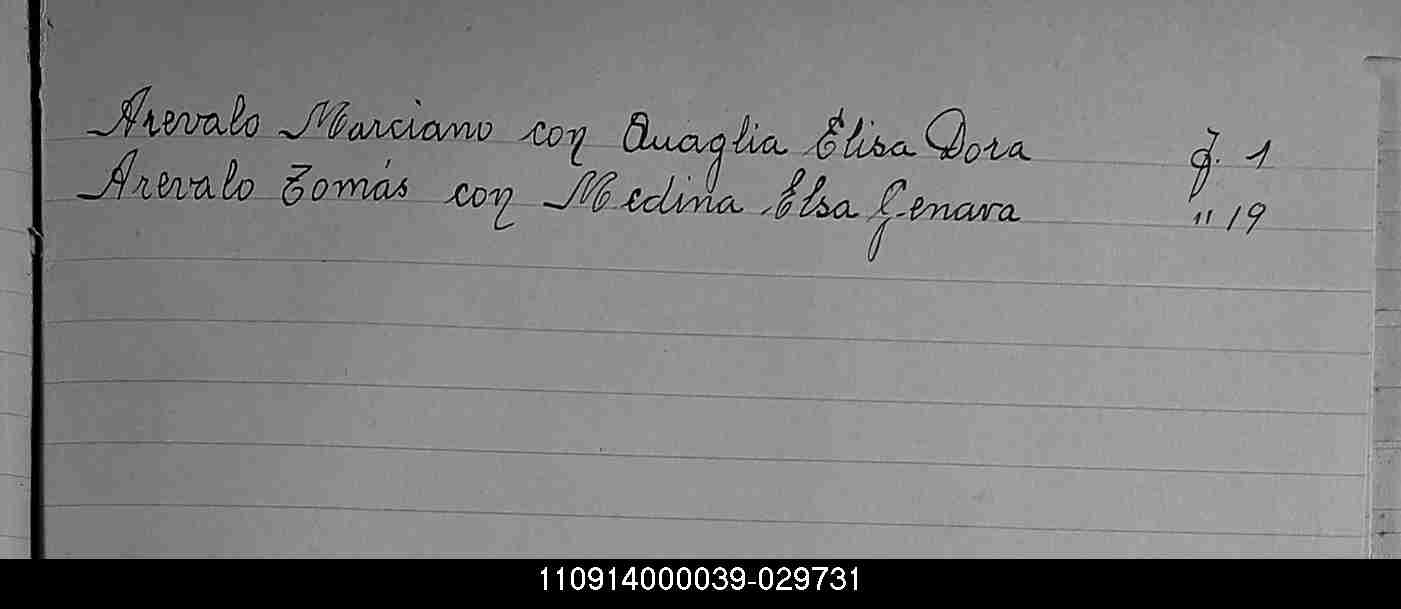 Arevalo Marciano con Quaglia Elisa Dora f. 1
Arevalo Tomás con Medina Elsa Genara " 19
110914000039-029731